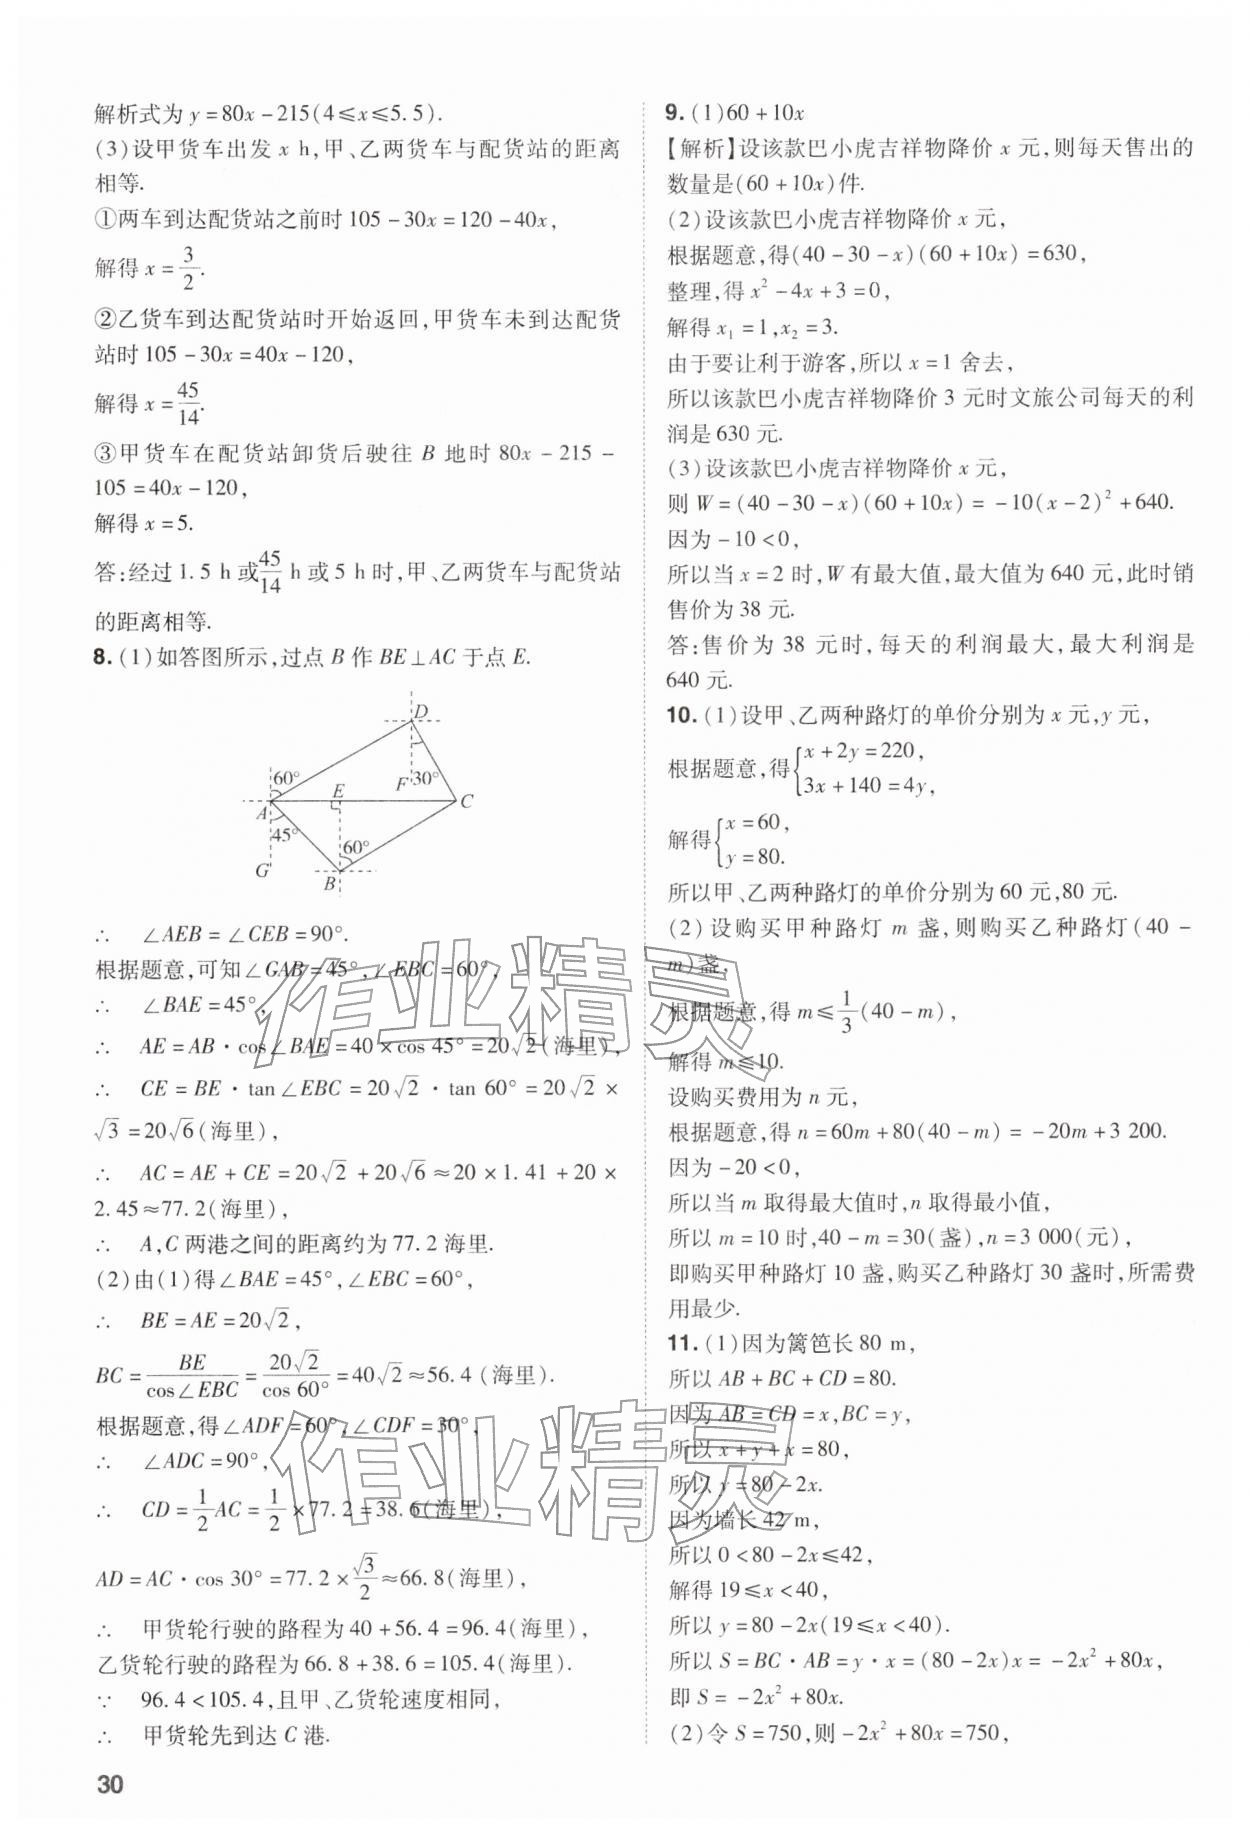 解析式为 y=80x-215(4≤x≤5.5).
(3)设甲货车出发 x h,甲、乙两货车与配货站的距离
相等.
①两车到达配货站之前时 105-30x=120-40x,
解得 x=3/2.
②乙货车到达配货站时开始返回,甲货车未到达配货
站时 105-30x=40x-120,
解得 x=45/14.
③甲货车在配货站卸货后驶往 B 地时 80x-215-
105=40x-120,
解得 x=5.
答:经过 1.5 h 或45/14 h 或 5 h 时,甲、乙两货车与配货站
的距离相等.
8. (1)如答图所示,过点 B 作 BE⊥AC 于点 E.
D
60°
F
30°
E
A
C
45°
60°
G
B
∴ ∠AEB=∠CEB=90°.
根据题意,可知∠GAB=45°,∠EBC=60°,
∴ ∠BAE=45°,
∴ AE=AB·cos∠BAE=40×cos 45°=20√2(海里),
∴ CE=BE·tan∠EBC=20√2·tan 60°=20√2×
√3=20√6(海里),
∴ AC=AE+CE=20√2+20√6≈20×1.41+20×
2.45≈77.2(海里),
∴ A,C 两港之间的距离约为 77.2 海里.
(2)由(1)得∠BAE=45°,∠EBC=60°,
∴ BE=AE=20√2,
BC=BE/cos∠EBC=20√2/cos 60°=40√2≈56.4(海里).
根据题意,得∠ADF=60°,∠CDF=30°,
∴ ∠ADC=90°,
∴ CD=1/2AC=1/2×77.2=38.6(海里),
AD=AC·cos 30°=77.2×√3/2≈66.8(海里),
∴ 甲货轮行驶的路程为 40+56.4=96.4(海里),
乙货轮行驶的路程为 66.8+38.6=105.4(海里).
∵ 96.4<105.4,且甲、乙货轮速度相同,
∴ 甲货轮先到达 C 港.
30
9. (1)60+10x
【解析】设该款巴小虎吉祥物降价 x 元,则每天售出的
数量是(60+10x)件.
(2)设该款巴小虎吉祥物降价 x 元,
根据题意,得(40-30-x)(60+10x)=630,
整理,得 x²-4x+3=0,
解得 x₁=1,x₂=3.
由于要让利于游客,所以 x=1 舍去,
所以该款巴小虎吉祥物降价 3 元时文旅公司每天的利
润是 630 元.
(3)设该款巴小虎吉祥物降价 x 元,
则 W=(40-30-x)(60+10x)=-10(x-2)²+640.
因为-10<0,
所以当 x=2 时,W 有最大值,最大值为 640 元,此时销
售价为 38 元.
答:售价为 38 元时,每天的利润最大,最大利润是
640 元.
10. (1)设甲、乙两种路灯的单价分别为 x 元,y 元,
根据题意,得{x+2y=220,
3x+140=4y,
解得{x=60,
y=80.
所以甲、乙两种路灯的单价分别为 60 元,80 元.
(2)设购买甲种路灯 m 盏,则购买乙种路灯(40-
m)盏,
根据题意,得 m≤1/3(40-m),
解得 m≤10.
设购买费用为 n 元,
根据题意,得 n=60m+80(40-m)=-20m+3 200.
因为-20<0,
所以当 m 取得最大值时,n 取得最小值,
所以 m=10 时,40-m=30(盏),n=3 000(元),
即购买甲种路灯 10 盏,购买乙种路灯 30 盏时,所需费
用最少.
11. (1)因为篱笆长 80 m,
所以 AB+BC+CD=80.
因为 AB=CD=x,BC=y,
所以 x+y+x=80,
所以 y=80-2x.
因为墙长 42 m,
所以 0<80-2x≤42,
解得 19≤x<40,
所以 y=80-2x(19≤x<40).
所以 S=BC·AB=y·x=(80-2x)x=-2x²+80x,
即 S=-2x²+80x.
(2)令 S=750,则-2x²+80x=750,
作业精灵
作业精灵